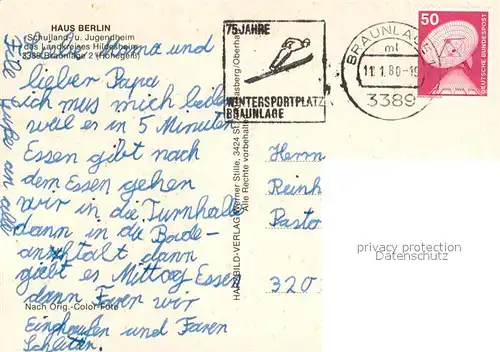 HAUS BERLIN
Schulland- u. Jugendheim
des Landkreises Hildesheim
3389 Braunlage 2 (Hohegeiß)
Mama und
lieber Papa
ich mus mich beilen
weil es in 5 Minuten
Essen gibt nach
dem Essen gehen
wir in die Turnhalle
dann in die Bade-
anstalt dann
giebt es Mittag Essen
dann Faren wir
Einghaufen und Faren
Schlitten.
Nach Orig.-Color-Foto
an alle
HARZBILD-VERLAG Werner Stille, 3424 St. Andreasberg/Oberharz
Alle Rechte vorbehalten
75 JAHRE
WINTERSPORTPLATZ
BRAUNLAGE
BRAUNLAGE
ml
11.1.80-19
3389
50
DEUTSCHE BUNDESPOST
Herrn
Reinh
Pastor
320
privacy protection
Datenschutz